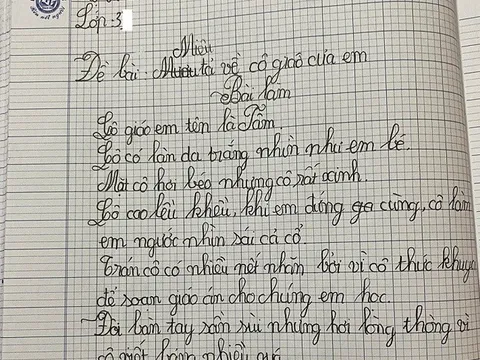 Lớp: 3
Miêu
Đề bài: Mưu tả về cô giáo của em
Bài làm
Cô giáo em tên là Tẩm.
Cô có làn da trắng nhìn như em bé.
Mặt cô hơi béo nhưng cô rất xinh.
Cô cao lêu khêu, khi em đứng ga cùng, cô làm
em ngước nhìn sái cả cổ.
Trán cô có nhiều nết nhăn bởi vì cô thức khuya
để soạn giáo án cho chúng em học.
Đôi bàn tay sần sùi nhưng hơi lòng thòng vì